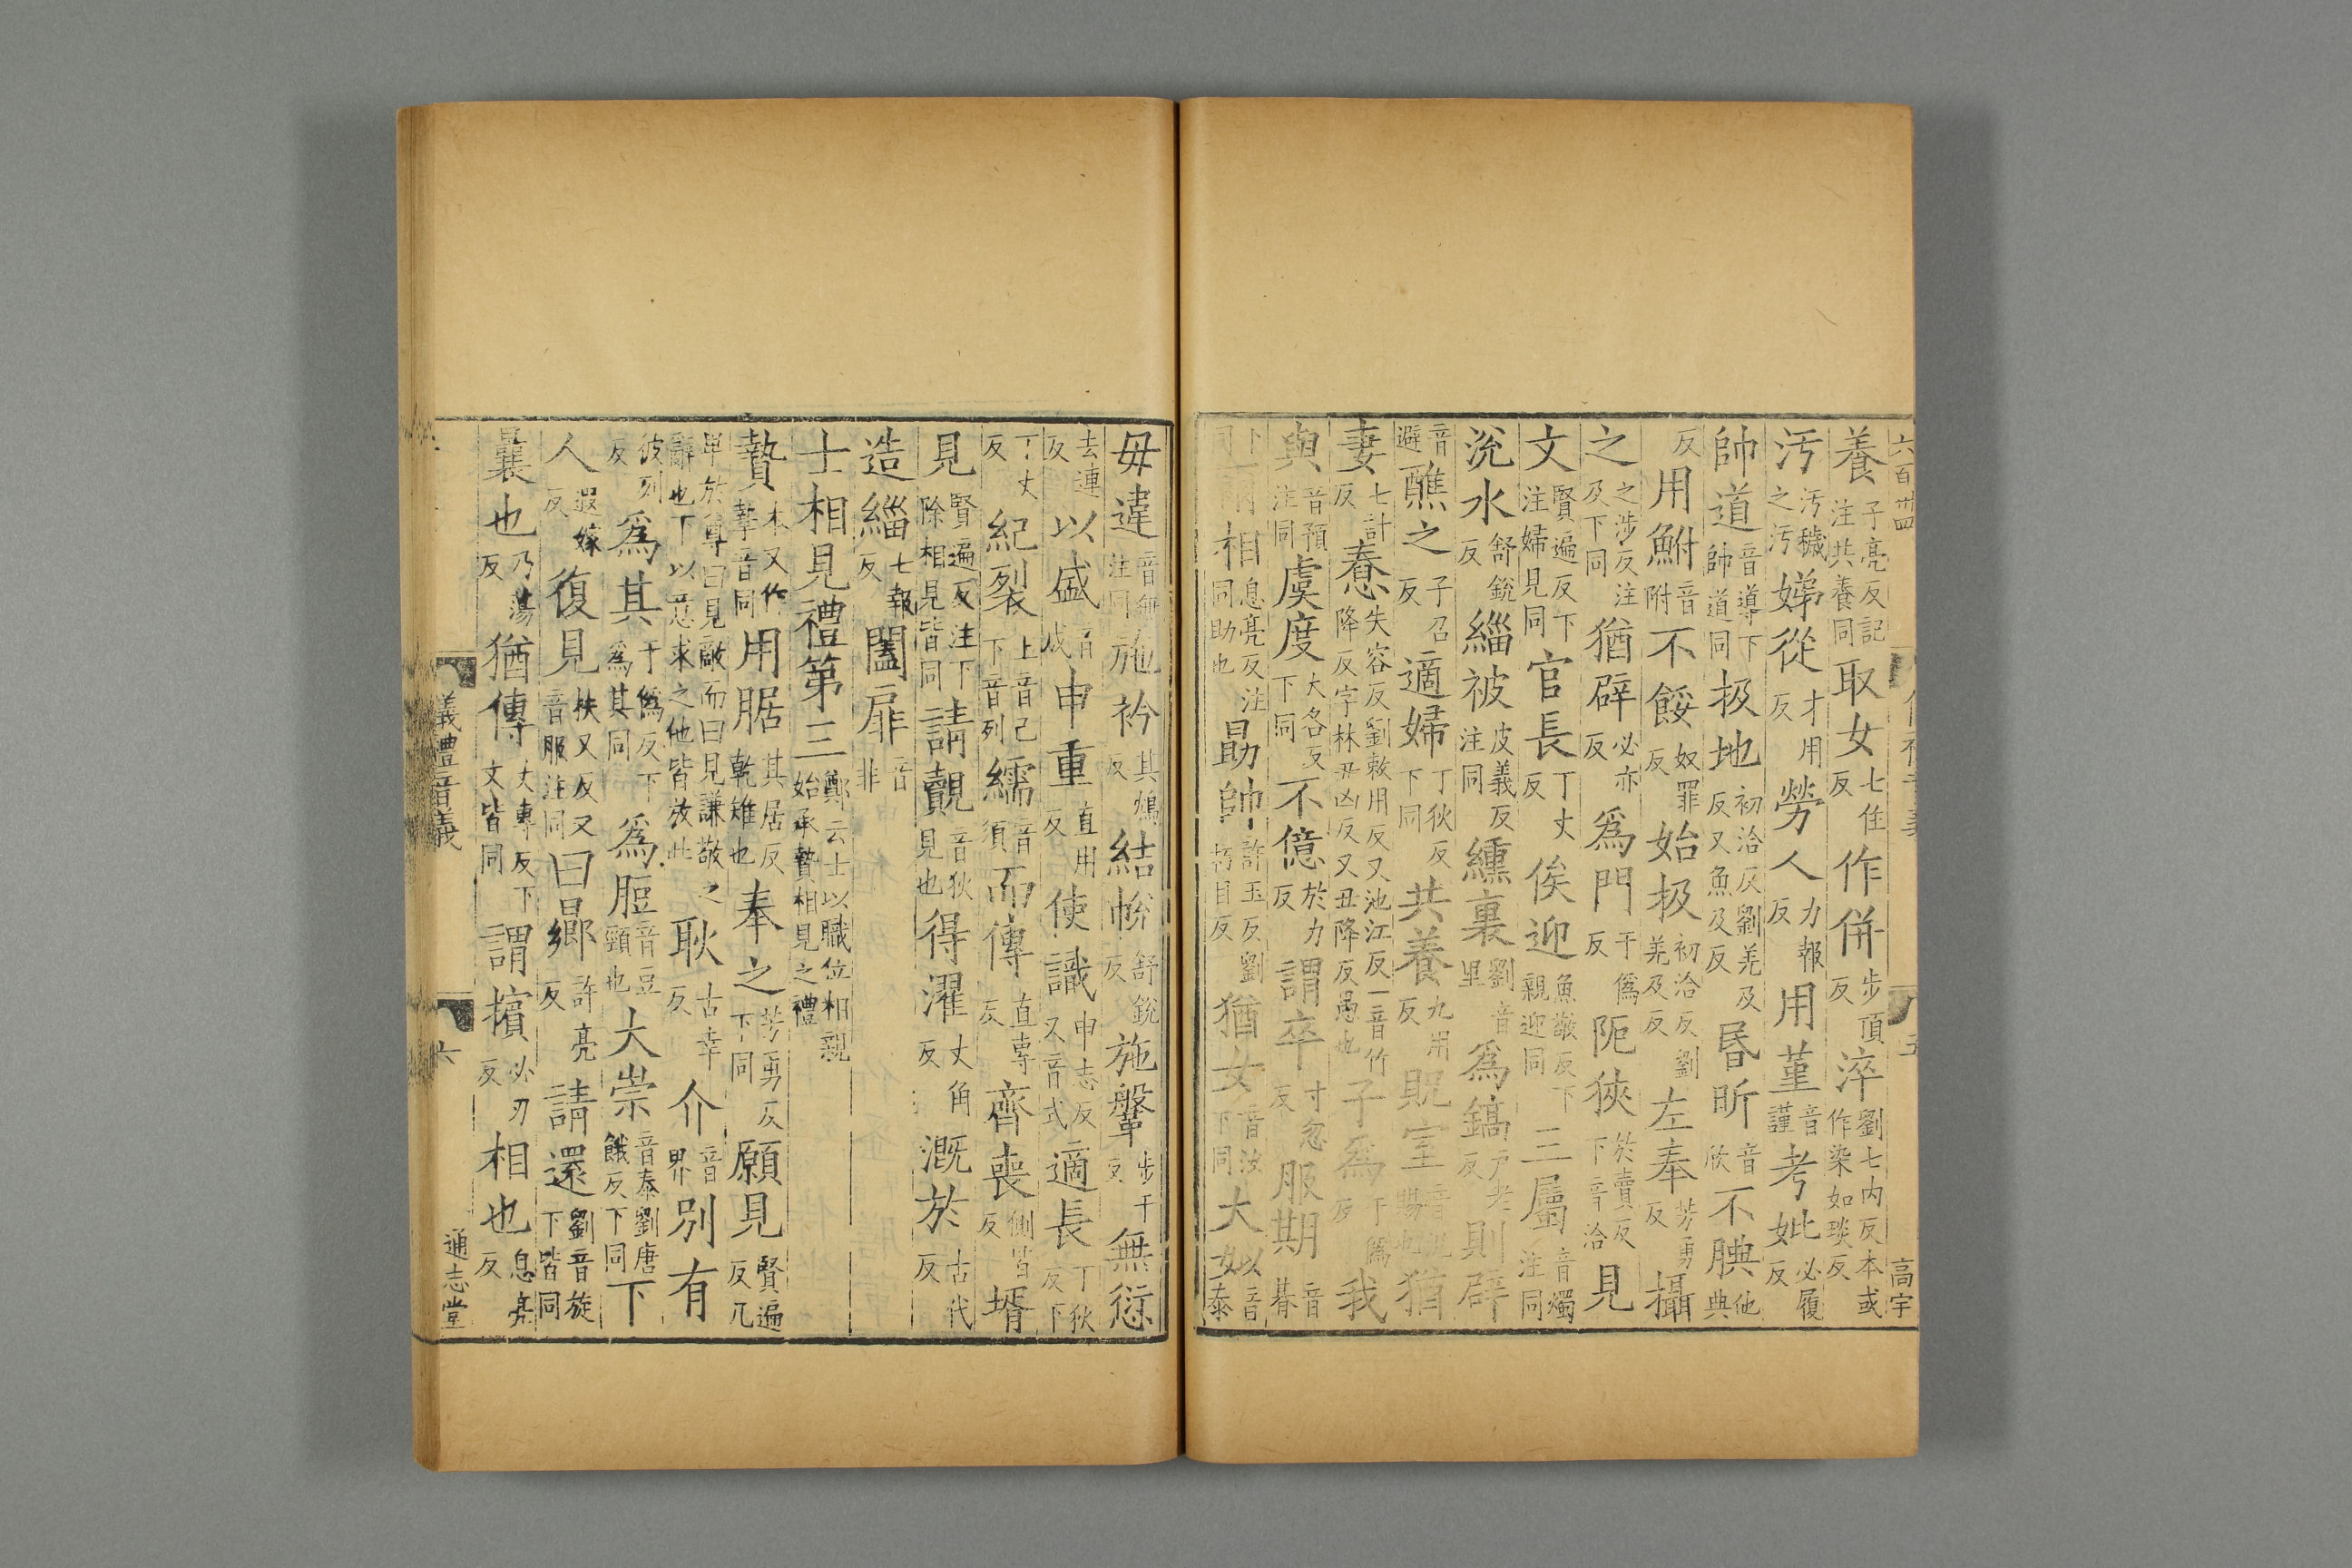 六百卅四 高宇
養子亮反記注共養同取女七住反作併步頂反淬劉七内反本或作染如琰反
汚汚穢之汚娣從才用反勞人力報反用堇音謹考妣必履反
帥道音導下帥道同扱地初洽反劉羌及反又魚及反昬昕音欣不腆他典
反用鮒音附不餒奴罪反始扱初洽反劉羌及反左奉芳勇反攝
之之涉反注及下同猶辟必亦反爲門于僞反阨狹於賣反下音洽見
文賢遍反下注婦見同官長丁丈反俟迎魚敬反下親迎同三屬音燭注同
涗水舒銳反緇被皮義反注同纁裏劉音里爲鎬戶老反則辟
音避醮之子召反適婦丁狄反下同共養九用反貺室音況賜也猶
妻七計反惷失容反劉敕用反又池江反一音竹降反字林丑凶反又丑降反愚也子爲于僞反我
與音預注同虞度大各反下同不億於力反謂卒寸忽反服期音朞
相息亮反注同助也勖帥許玉反劉猶女音汝下同大姒音泰
毋違音無注同施衿其鴆反結帨舒銳反施鞶步干反無愆
去連反以盛音成申重直用反使識申志反又音式適長丁狄反下
丁丈反紀裂上音己下音列繻音須而傳直專反齊喪側皆反壻
見賢遍反注下除相見皆同請覿音狄見也得濯丈角反漑於古代反
造緇七報反闔扉音非
士相見禮第三鄭云士以職位相親始承贄相見之禮
贄本又作摯音同用腒其居反乾雉也奉之芳勇反下同願見賢遍反凡
卑於尊曰見敵而曰見謙敬之辭也下以意求之他皆放此耿古幸反介音界別有
彼列反爲其于僞反下爲其同爲脰音豆頸也大崇音泰劉唐餓反下同下
人遐嫁反復見扶又反又音服注同曰曏許亮反請還劉音旋下皆同
曩也乃蕩反猶傳丈專反下文皆同謂擯必刃反相也息亮反
義禮音義 六 通志堂